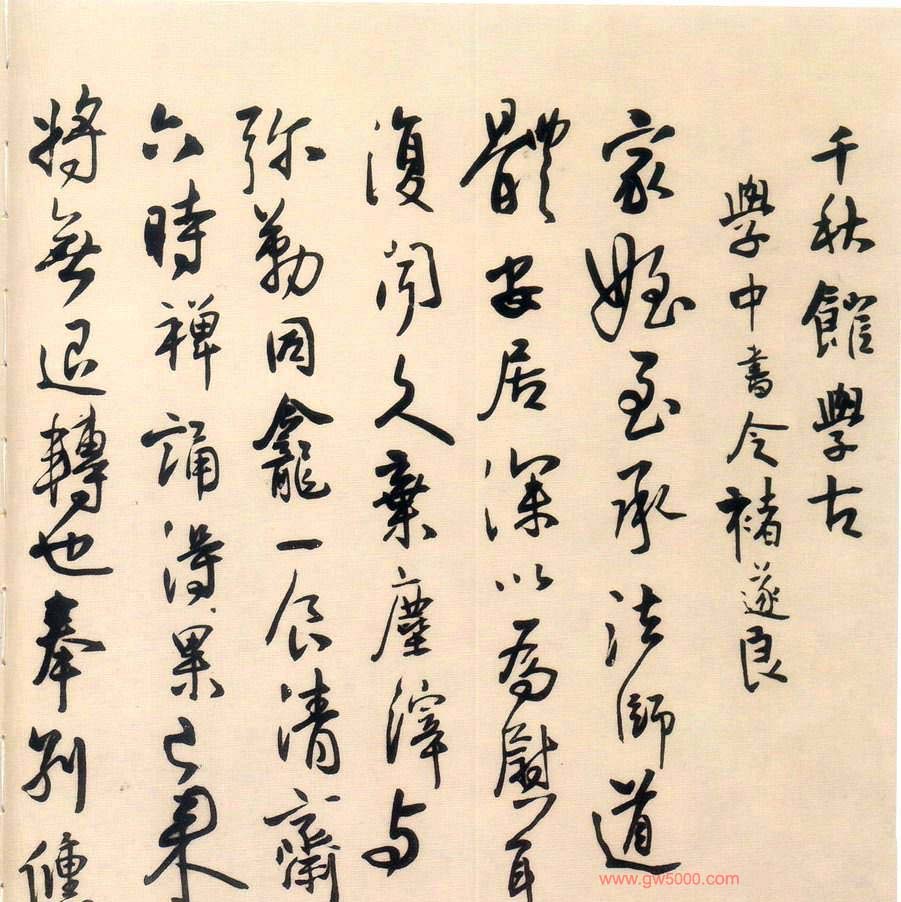 千秋館學古
學中書令褚遂良
家姪至承法師道
體安居深以為慰耳
復聞久棄塵滓与
弥勒同龕一食清齋
六時禪誦得果已来
将無退轉也奉別
www.gw5000.com